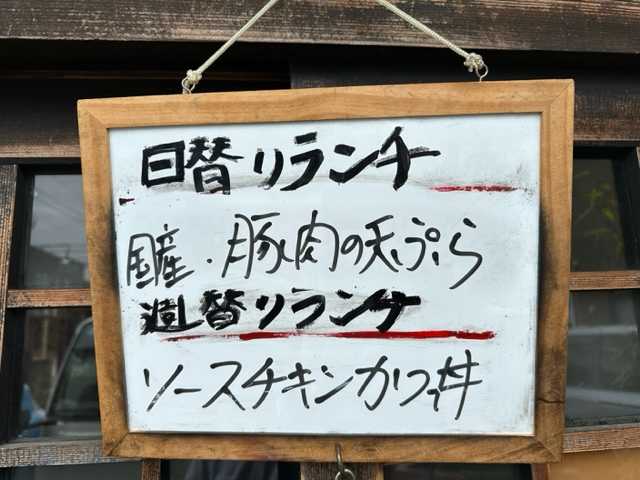 日替りランチ
国産・豚肉の天ぷら
週替りランチ
ソースチキンカツ丼